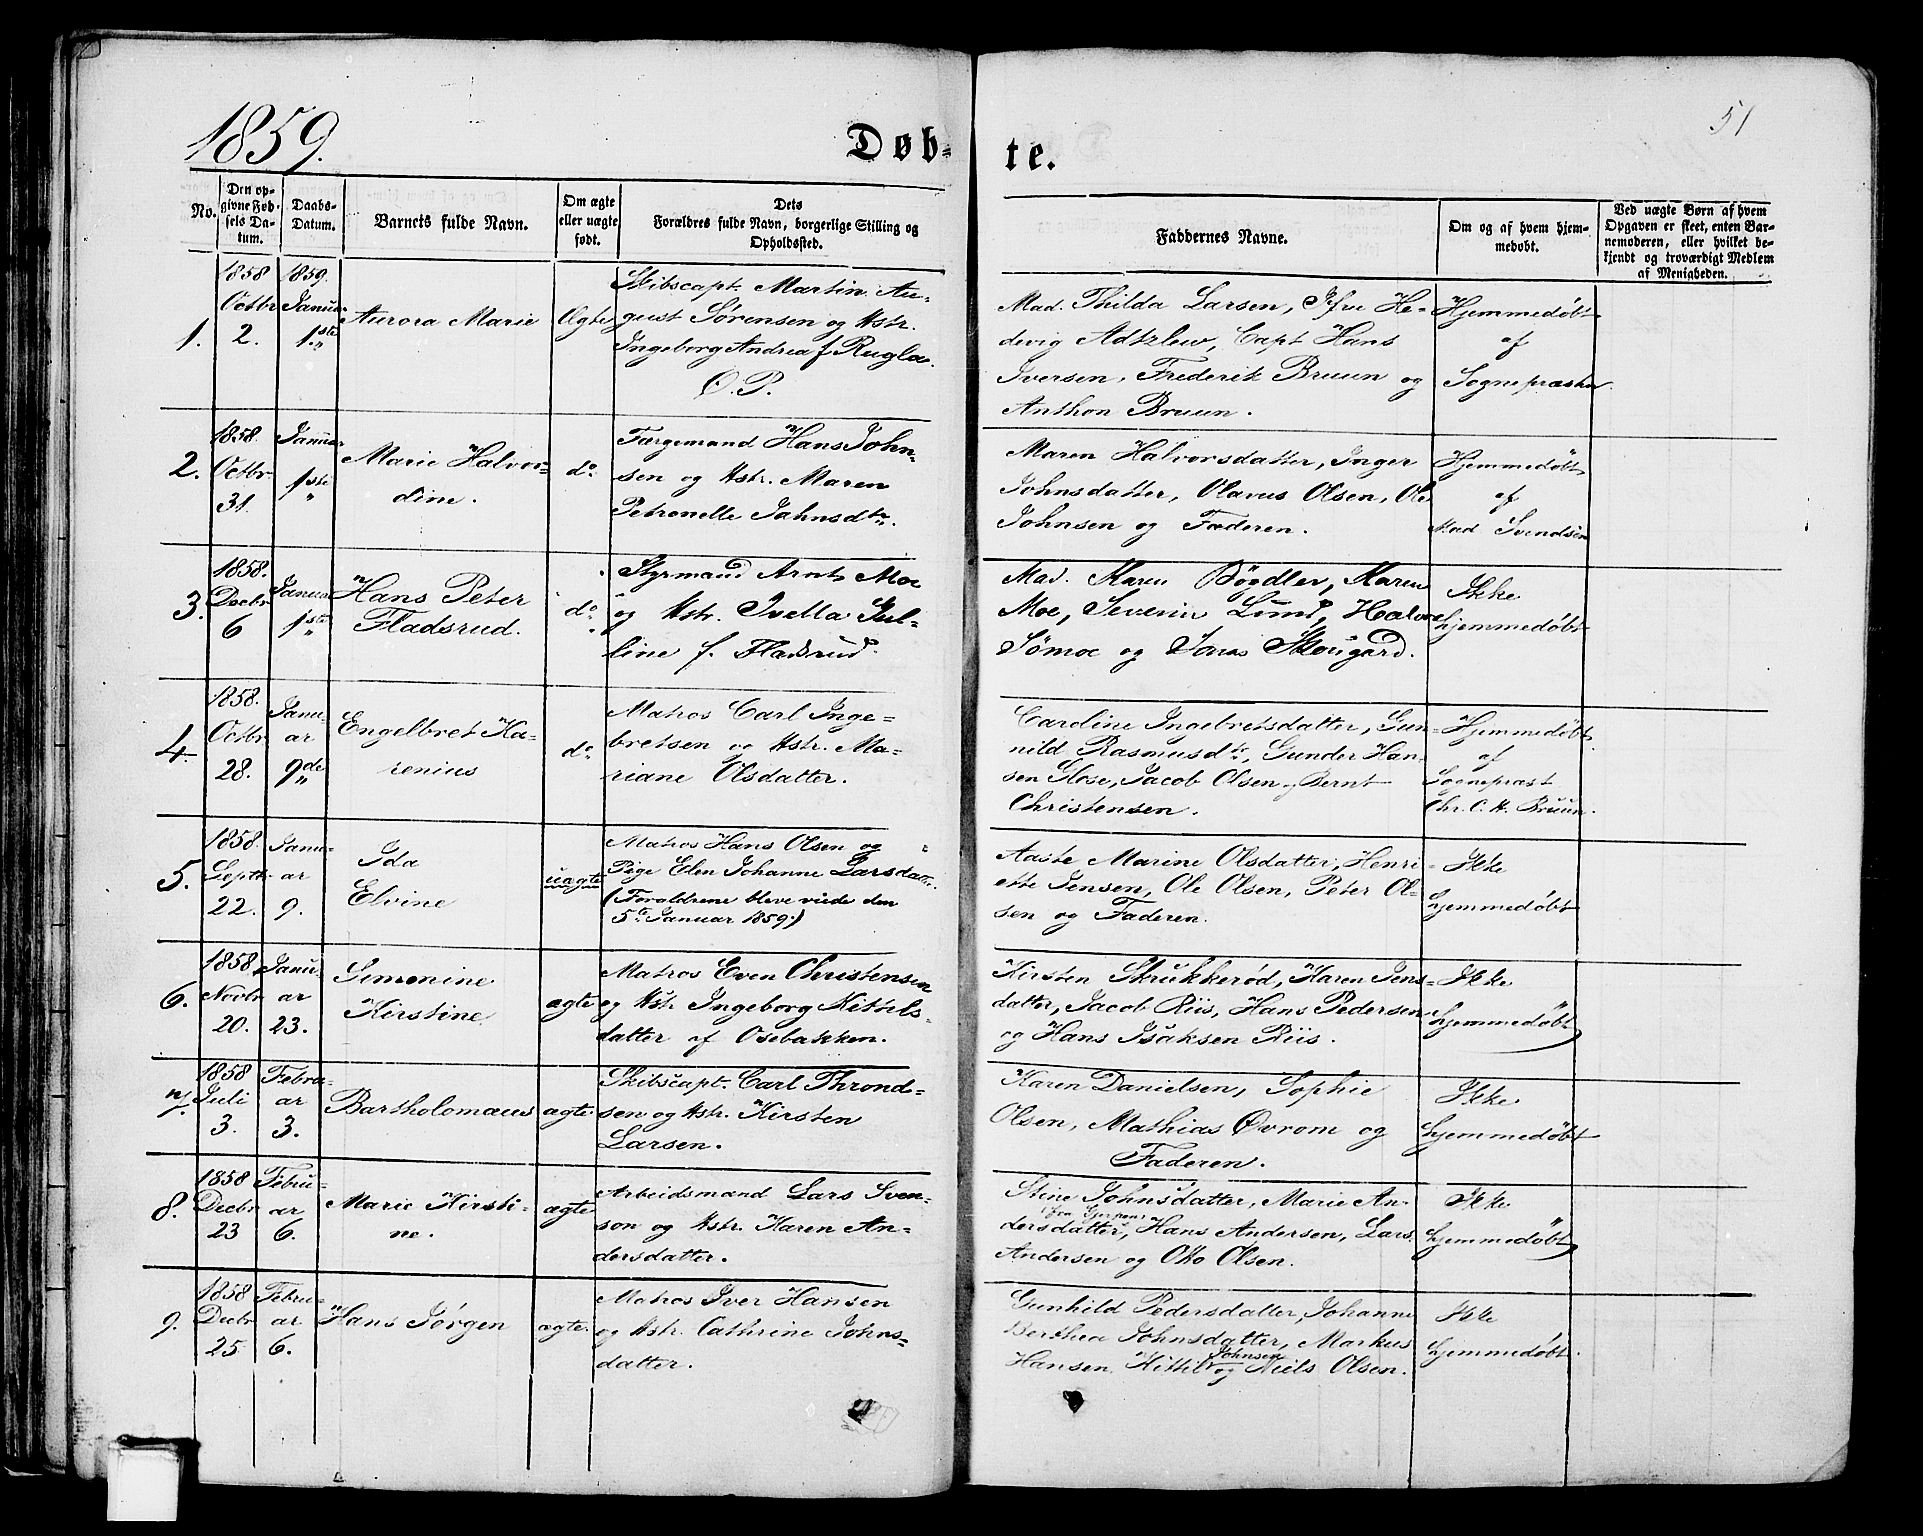 1859.
Døb-
te.
51
No.
Den op-
givne Fød-
sels Da-
tum.
Daabs-
Datum.
Barnets fulde Navn.
Om ægte
eller uægte
født.
Dets
Forældres fulde Navn, borgerlige Stilling og
Opholdssted.
Faddernes Navne.
Om og af hvem hjem-
medøbt.
Ved uægte Børn af hvem
Opgaven er skeet, enten Bar-
nemoderen, eller hvilket be-
kjendt og troværdigt Medlem
af Menigheden.
1.
1858
Octbr
2.
1859.
Januar
1ste
Aurora Marie
Ægte
Skibscapt. Martin Au-
gust Sørensen og Hstr.
Ingeborg Andrea f. Rugla.
Ø. P.
Mad. Thilda Larsen, Jfru He-
devig Adtzlew, Capt Hans
Iversen, Frederik Bruun og
Anthon Bruun.
Hjemmedøbt
af
Sognepræsten
2.
1858.
Octbr.
31.
Januar
1ste
Marie Halvor-
dine.
do.
Færgemand Hans John-
sen og Hstr. Maren
Petronelle Jahnsdtr.
Maren Halvorsdatter, Inger
Johnsdatter, Olavus Olsen, Ole
Johnsen og Faderen.
Hjemmedøbt
af
Mad Svendsen
3.
1858.
Decbr
6
Januar
1ste
Hans Peter
Fladsrud.
do.
Styrmand Arnt Moe
og Hstr. Ivella Jul-
line f. Fladsrud.
Mad. Karen Bøydler, Karen
Moe, Severin Lund, Halvor
Sømoe og Jonas Skougard.
Ikke
hjemmedøbt
4.
1858.
Octbr
28.
Janu-
ar
9de
Engelbret Ka-
renius
do.
Matros Carl Inge-
bretsen og Hstr. Ma-
riane Olsdatter.
Caroline Ingebretsdatter, Gun-
nild Rasmusdtr., Gunder Han-
sen Glose, Jacob Olsen og Bernt
Christensen.
Hjemmedøbt
af
Sognepræst
Chr. C. H. Bruun.
5.
1858.
Septb.
22.
Janu-
ar
9.
Ida
Elvine
uægte
Matros Hans Olsen og
Pige Elen Johanne Larsdatter.
(Forældrene bleve viede den
5te Januar 1859.)
Aaste Marine Olsdatter, Henri-
ette Jensen, Ole Olsen, Peter Ol-
sen og Faderen.
Ikke
hjemmedøbt
6.
1858.
Novbr
20.
Janu-
ar
23.
Simonine
Kirstine
ægte
Matros Even Christensen
og Hstr Ingeborg Kittils-
datter af Osebakken.
Kirsten Strukkerød, Karen Jens-
datter, Jacob Riis, Hans Pedersen
og Hans Isaksen Riis.
Ikke
hjemmedøbt
7.
1858
Juli
3.
Febru-
ar
3.
Bartholomæus
ægte
Skibscapt. Carl Thrond-
sen og Hstr. Kirsten
Larsen.
Karen Danielsen, Sophie
Olsen, Mathias Øvrom og
Faderen.
Ikke
hjemmedøbt
8.
1858
Decbr
23
Febru-
ar
6.
Marie Kirsti-
ne.
ægte
Arbeidsmand Lars Sven-
son og Hstr. Karen An-
dersdatter.
Stine Johnsdatter, Marie An-
(fra Gjerpen)
dersdatter, Hans Andersen, Lars
Andersen og Otto Olsen.
Ikke
hjemmedøbt
9.
1858
Decbr
25
Febru-
ar
6.
Hans Jørgen
ægte
Matros Iver Hansen
og Hstr. Cathrine Johns-
datter.
Gunhild Pedersdatter, Johanne
Berthea Johnsdatter, Markus
Johnsen
Hansen, Kittil og Niels Olsen.
Ikke
hjemmedøbt.